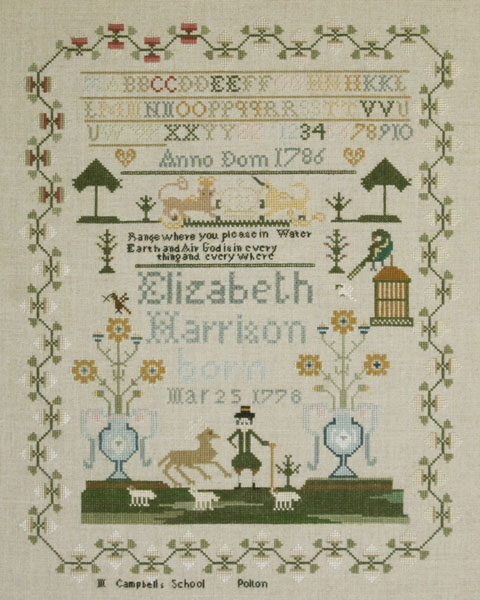 BBCCDDEEFF HKKL
OOPPqqRRSSTTVVU
UW XXYY 12 34 78910
Anno Dom 1786
Range where you please in Water
Earth and Air God is in every
thing and every where
Elizabeth
Harrison
born
Mar 25 1778
M Campbells School Polton